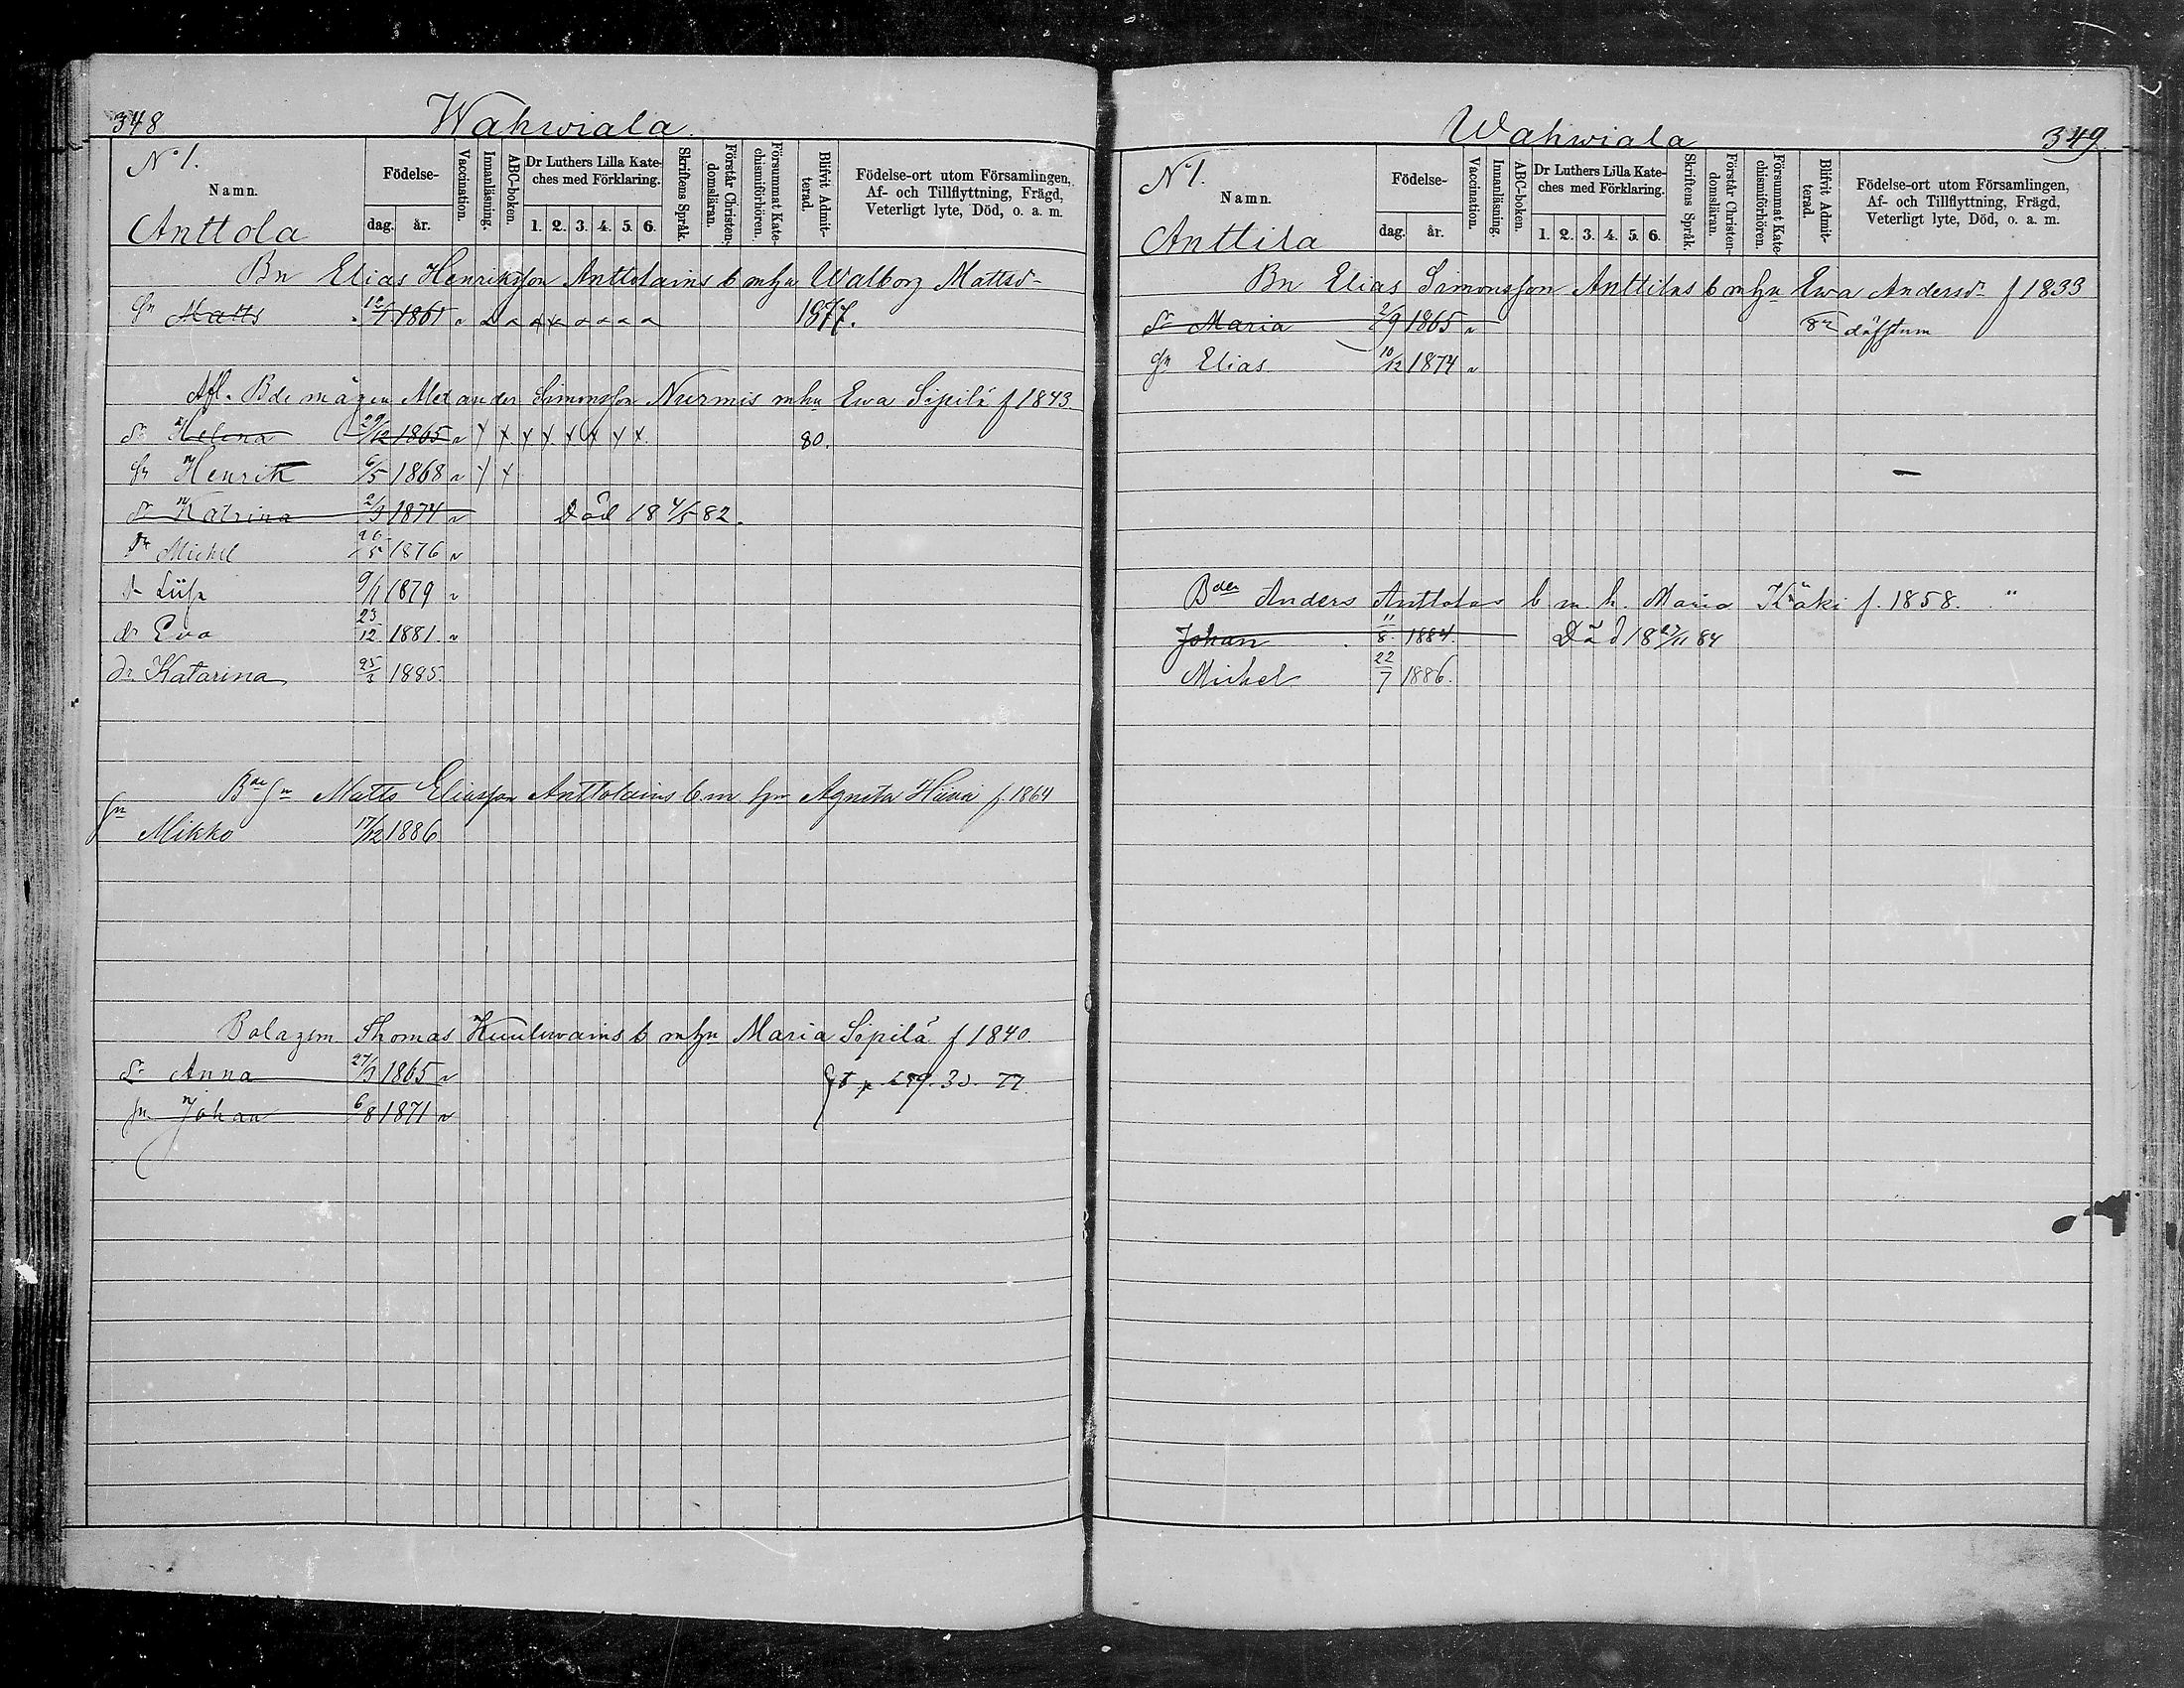 348
Wahwiala.
No 1.
Namn.
Födelse-
dag. år.
Vaccination.
Innanläsning.
ABC-boken.
Dr Luthers Lilla Kate-
ches med Förklaring.
1. 2. 3. 4. 5. 6.
Skriftens Språk.
Förstår Christen-
domsläran.
Försummat Kate-
chismiförhören.
Blifvit Admit-
terad.
Födelse-ort utom Församlingen,
Af- och Tillflyttning, Frägd,
Veterligt lyte, Död, o. a. m.
Anttola
Bn Elias Henriksson Anttolains b mhu Walborg Mattsdr
Sn Matts 1861 1877.
Afl. Bde mågen Alexander Simonsson Nurmis mhu Ewa Sipilä f 1843
dr Helena 29/12 1865 v x x x x x x x x 80.
Sn Henrik 6/5 1868 v x x
dr Katrina 2/3 1874 v Död 18 4/5 82.
Sn Michel 26/5 1876 v
dr Liisa 9/1 1879 v
dr Eva 23/12 1881. v
dr Katarina 25/3 1885.
Bde Sn Matts Eliasson Anttolains b m hu Agneta f. 1864
Sn
Mikko 17/12 1886.
Bolagem Thomas Kuulwains b mhu Maria Sipilä f 1840
dr Anna 27/3 1865 v
Sn Johan 6/8 1871 v
Wahwiala
349
No 1.
Namn.
Födelse-
dag. år.
Vaccination.
Innanläsning.
ABC-boken.
Dr Luthers Lilla Kate-
ches med Förklaring.
1. 2. 3. 4. 5. 6.
Skriftens Språk.
Förstår Christen-
domsläran.
Försummat Kate-
chismiförhören.
Blifvit Admit-
terad.
Födelse-ort utom Församlingen,
Af- och Tillflyttning, Frägd,
Veterligt lyte, Död, o. a. m.
Anttila
Bn Elias Simonsson Anttilas b mhu Ewa Andersdr f 1833
dr Maria 2/9 1865 v 82 döfstum
Sn Elias 10/12 1874 v
Bden Anders Anttolas b m. h. Maria Käki f. 1858. "
Johan 11/8 1884 Död 18 27/11 84
Michel 22/7 1886.